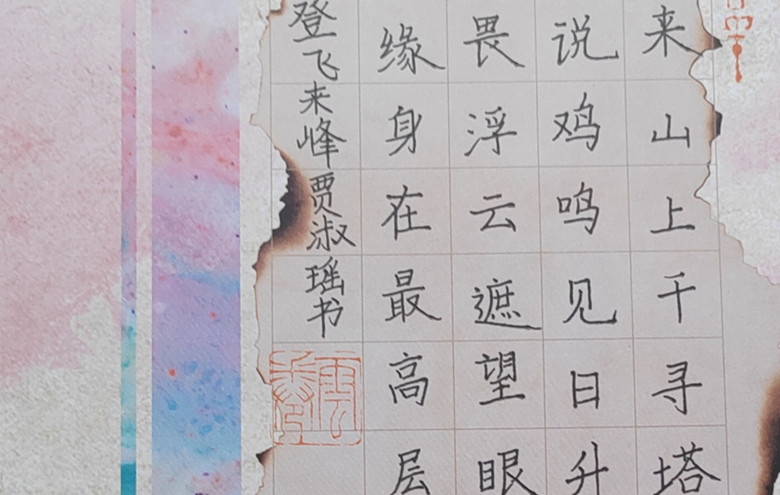 来山上千寻塔
说鸡鸣见日升
畏浮云遮望眼
缘身在最高层
登飞来峰贾淑瑶书